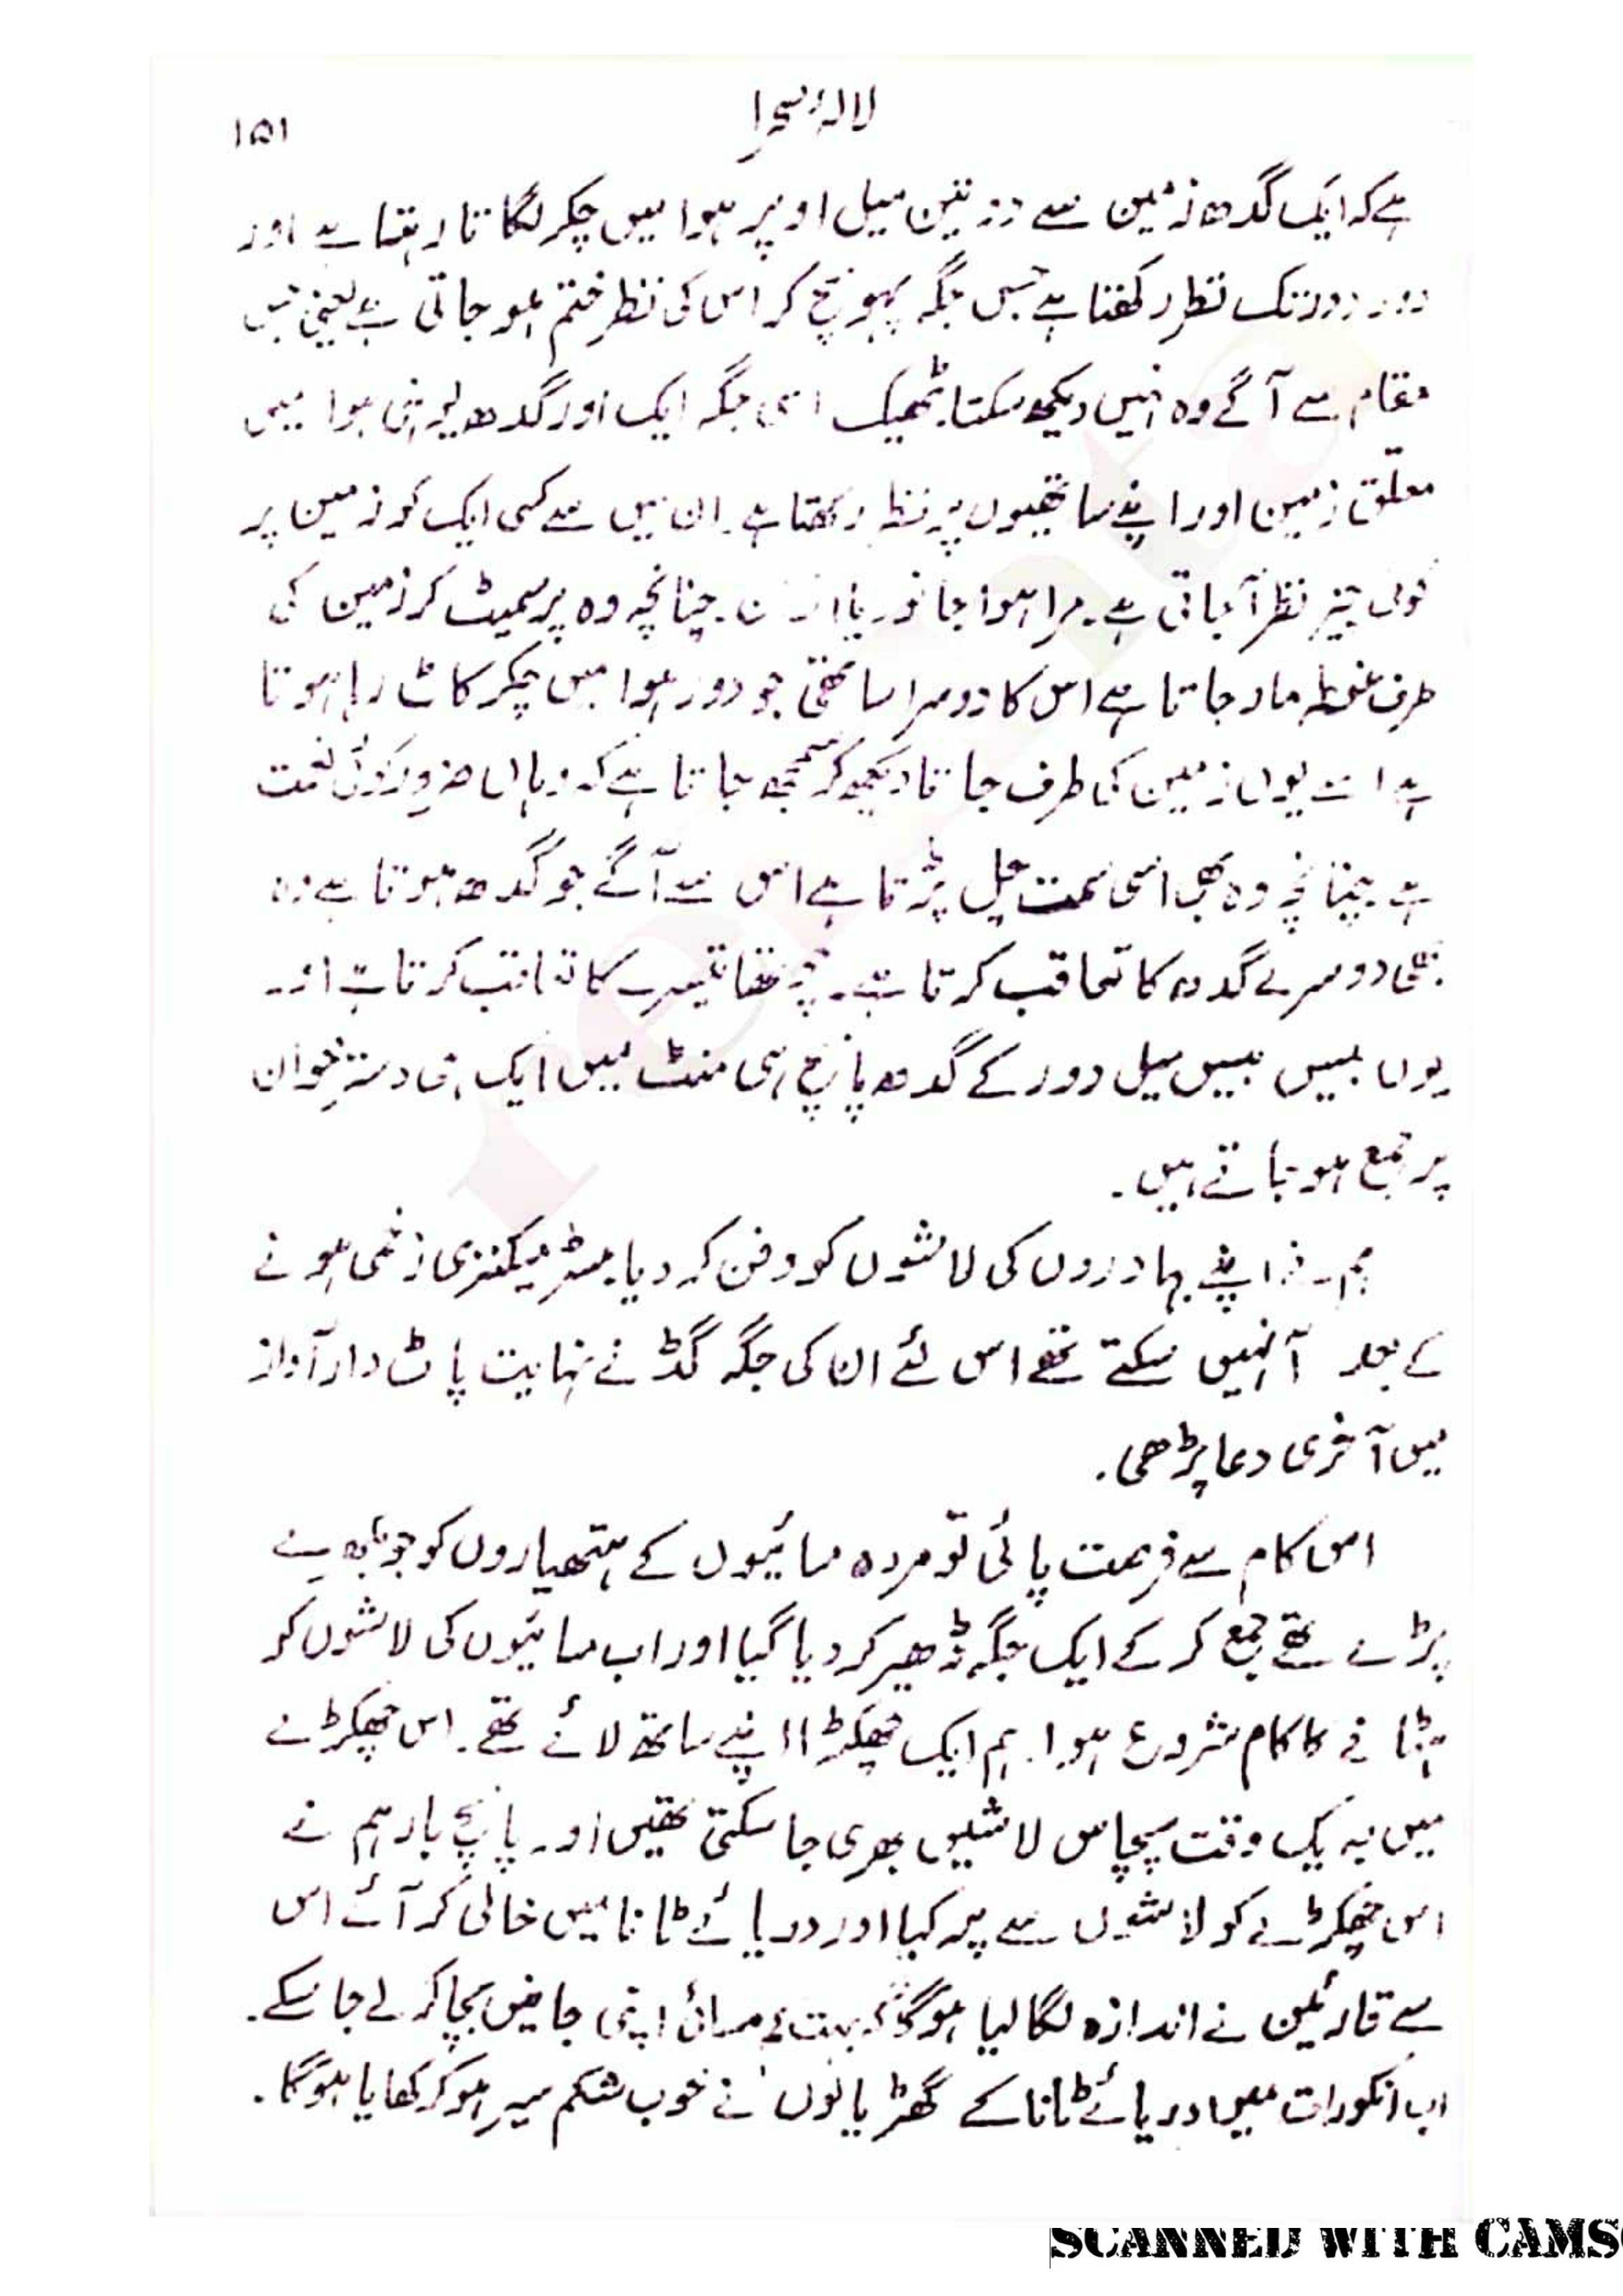 لالۂ صحرا
۱۵۱
ہے کہ ایک گدھ زمین سے دو تین میل اوپر ہوا میں چکر لگاتا رہتا ہے اور
دور دور تک نظر رکھتا ہے جس جگہ پہونچ کر اس کی نظر ختم ہو جاتی ہے یعنی جس
مقام سے آگے وہ نہیں دیکھ سکتا۔ ٹھیک اسی جگہ ایک اور گدھ یوں ہی ہوا میں
معلق زمین اور اپنے ساتھیوں پر نظر رکھتا ہے۔ ان میں سے کسی ایک کو زمین پر
کوئی چیز نظر آ جاتی ہے۔ مرا ہوا جانور یا انسان۔ چنانچہ وہ پر سمیٹ کر زمین کی
طرف غوطہ مار جاتا ہے اس کا دوسرا ساتھی جو دور ہوا میں چکر کاٹ رہا ہوتا
ہے اسے یوں زمین کی طرف جاتا دیکھ کر سمجھ جاتا ہے کہ وہاں ضرور کوئی نعمت
ہے۔ چنانچہ وہ بھی اسی سمت چل پڑتا ہے اس سے آگے جو گدھ ہوتا ہے وہ
بھی دوسرے گدھ کا تعاقب کرتا ہے۔ چوتھا تیسرے کا تعاقب کرتا ہے اور
یوں بیس بیس میل دور کے گدھ پانچ ہی منٹ میں ایک ہی دسترخوان
پر جمع ہو جاتے ہیں۔
ہم نے اپنے بہادروں کی لاشوں کو دفن کر دیا۔ مسٹر میکنزی زخمی ہونے
کے بعد آ نہیں سکتے تھے اس لئے ان کی جگہ گڈ نے نہایت پاٹ دار آواز
میں آخری دعا پڑھی۔
اس کام سے فرصت پائی تو مردہ مسائیوں کے ہتھیاروں کو جو
پڑے تھے جمع کر کے ایک جگہ ڈھیر کر دیا گیا اور اب مسائیوں کی لاشوں کو
ہٹانے کا کام شروع ہوا۔ ہم ایک چھکڑا اپنے ساتھ لائے تھے۔ اس چھکڑے
میں بہ یک وقت پچاس لاشیں بھری جا سکتی تھیں اور پانچ بار ہم نے
اس چھکڑے کو لاشوں سے پر کیا اور دریائے ٹانا میں خالی کر آئے اس
سے قارئین نے اندازہ لگا لیا ہوگا کہ بہت کم مسائی اپنی جانیں بچا کر لے جا سکے۔
اب انکو رات میں دریائے ٹانا کے گھڑیالوں نے خوب شکم سیر ہو کر کھایا ہوگا۔
SCANNED WITH CAMS